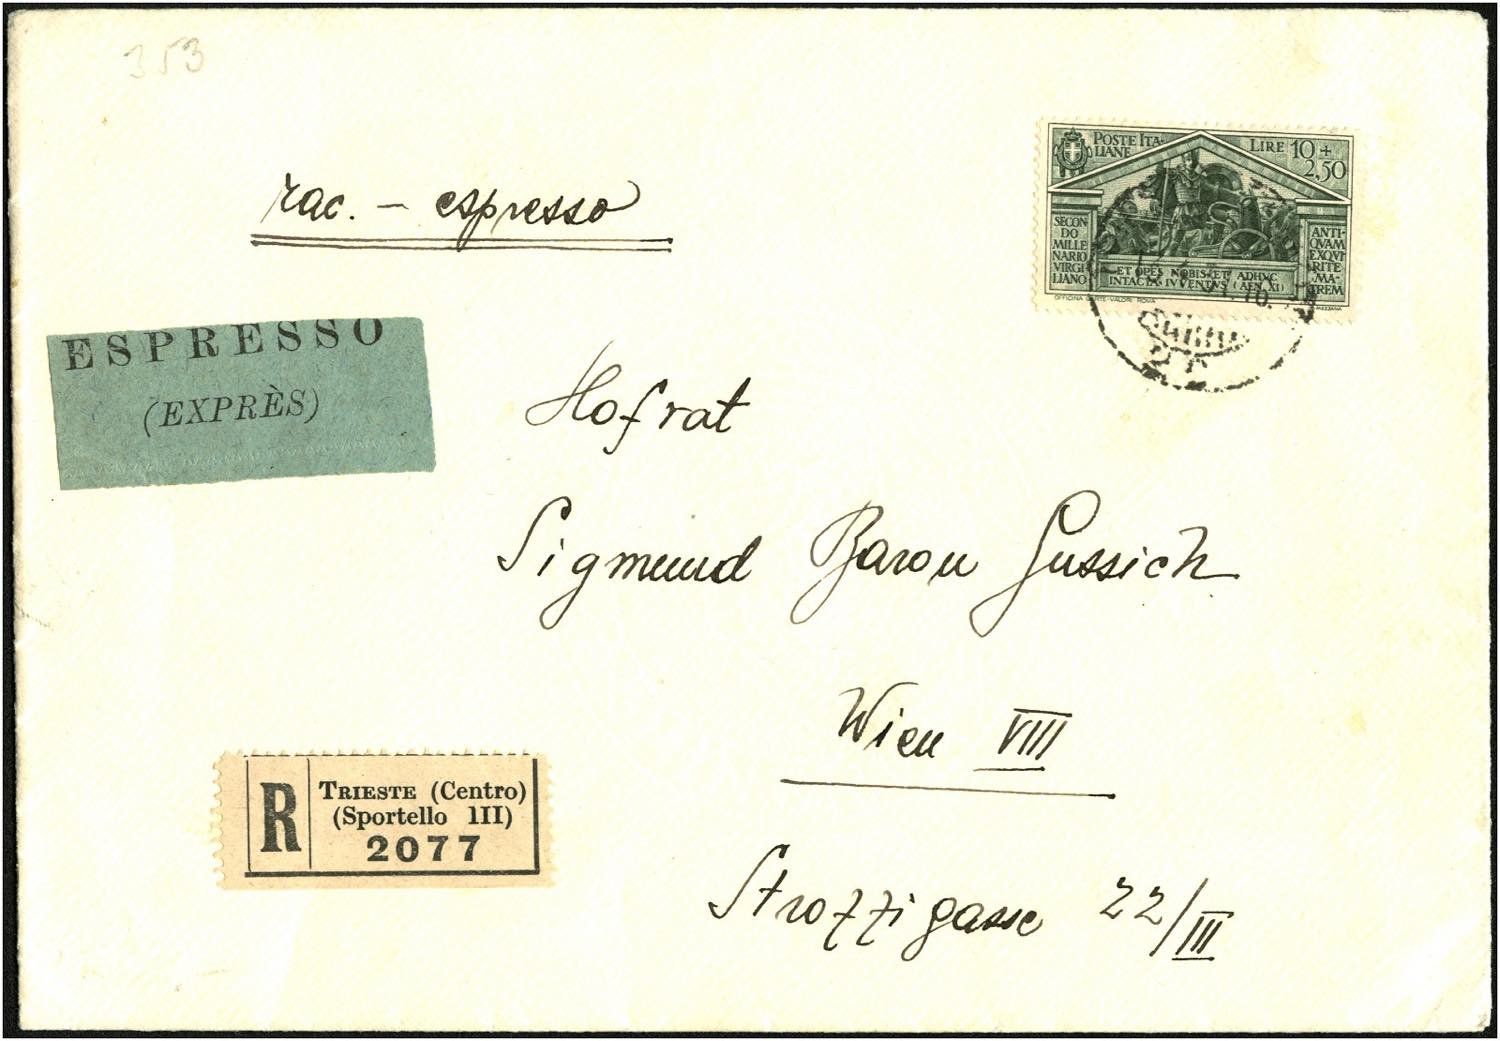 353
rac. – espresso
POSTE ITA-
LIANE
LIRE 10 +
2,50
SECON-
DO
MILLE
NARIO
VIRGI
LIANO
ANTI-
QVAM
EXQVI
RITE
MA-
TREM
ET OPES NOBIS ET ADHVC
INTACTA IVVENTVS (AEN. XI)
OFFICINA CARTE-VALORI ROMA
MEZZANA
ESPRESSO
(EXPRÈS)
Hofrat
Sigmund Baron Gussich
Wien VIII
R
TRIESTE (Centro)
(Sportello III)
2077
Strozzigasse 22/III